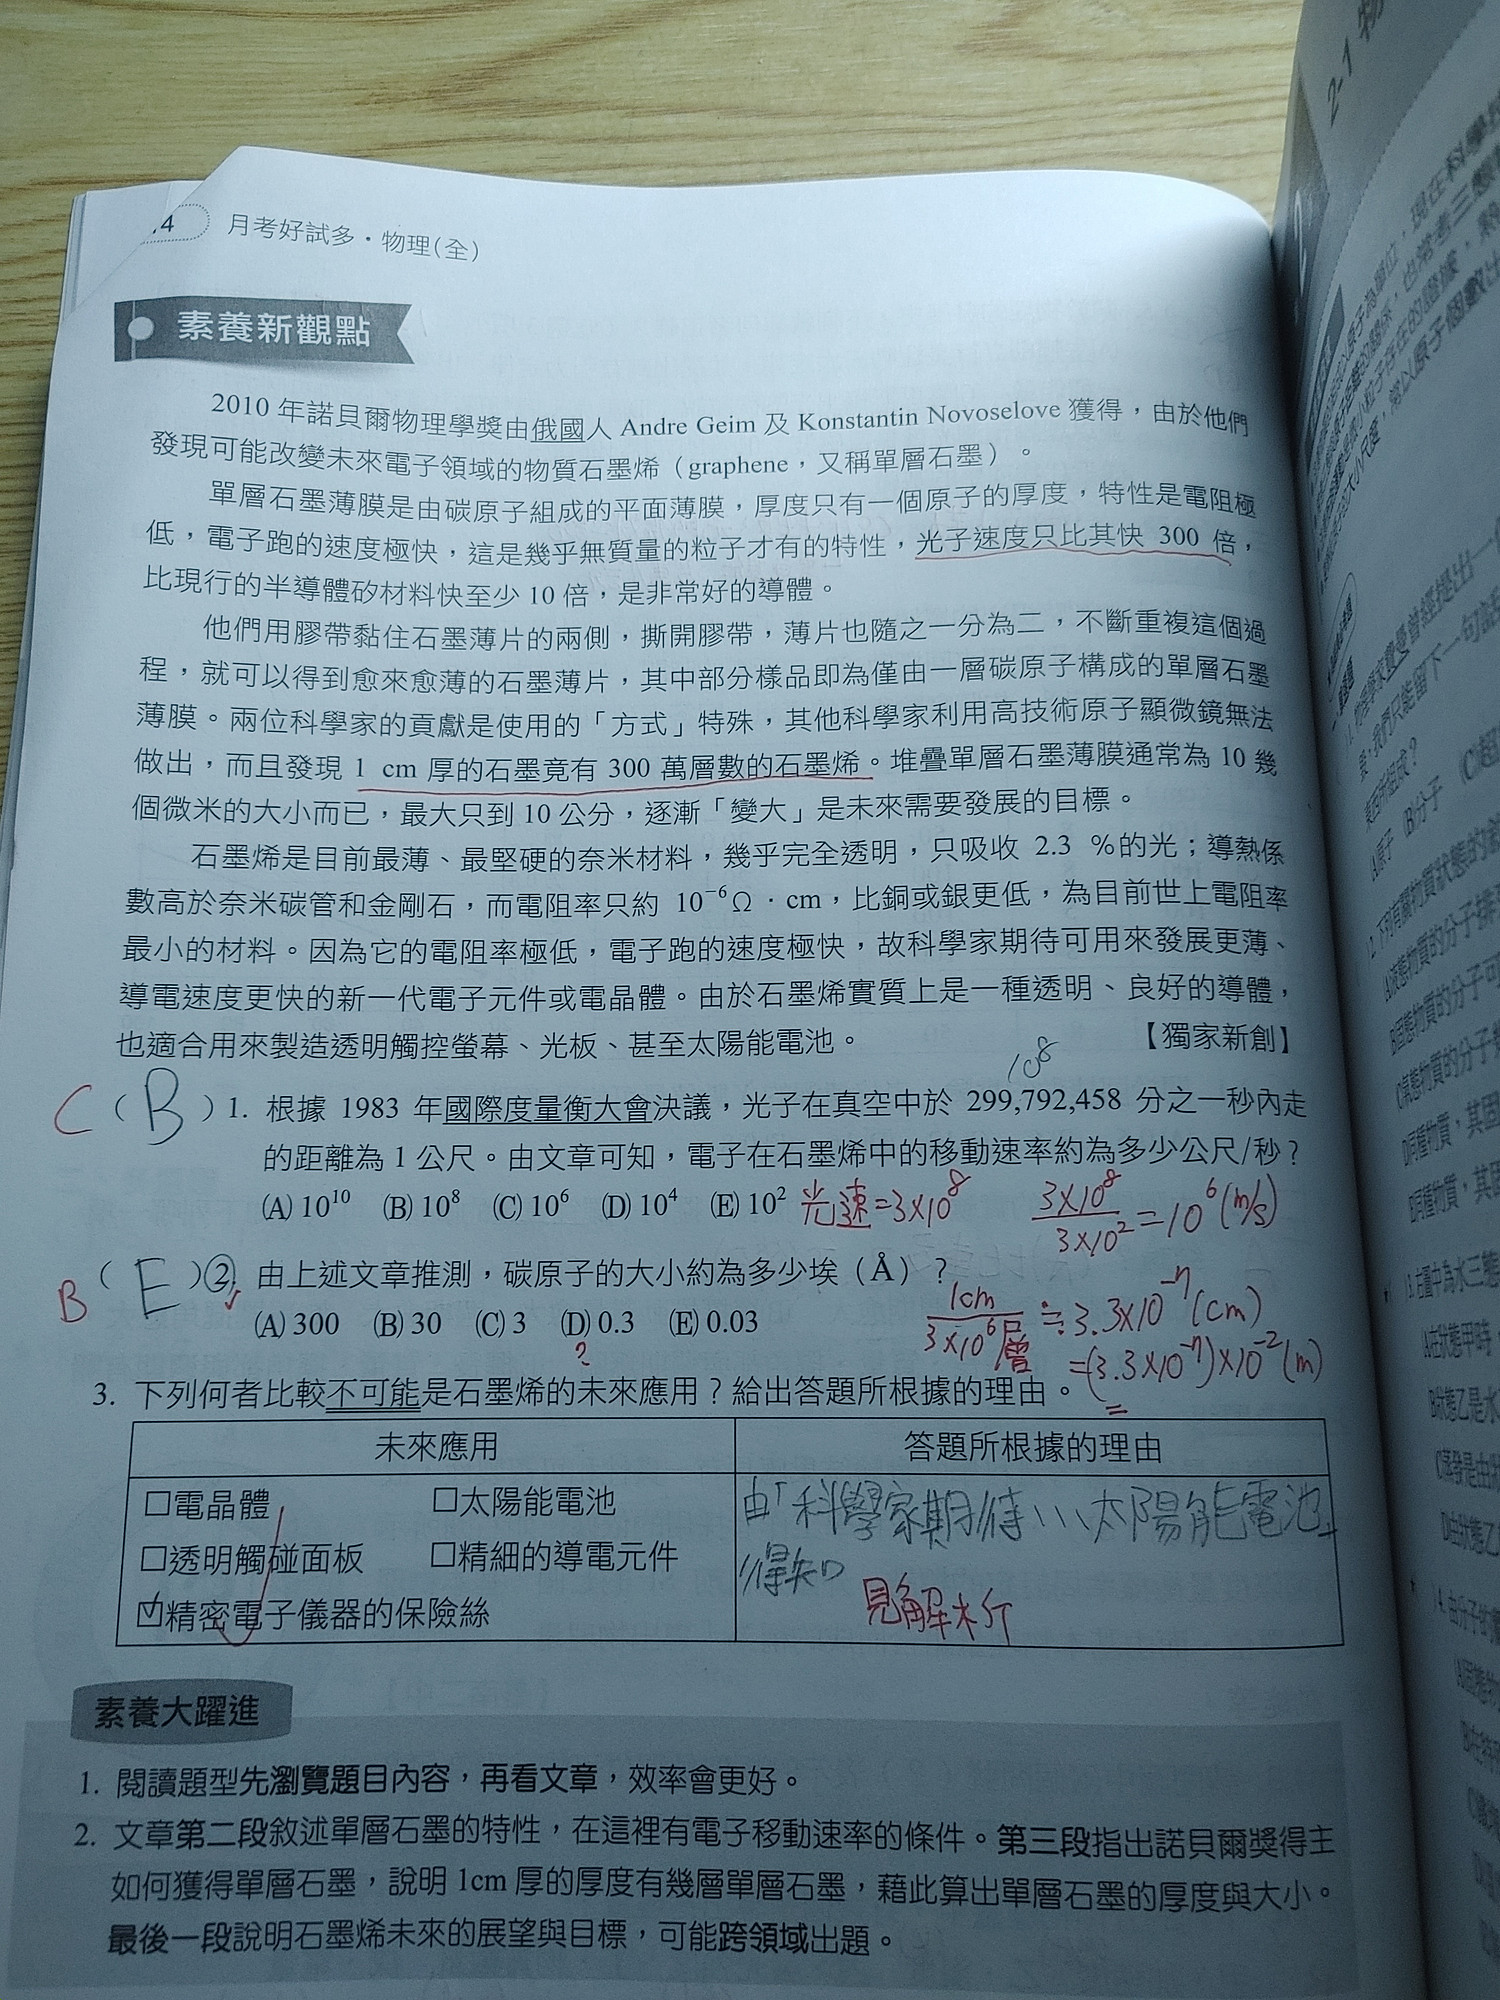 .4
月考好試多・物理(全)
素養新觀點
2010 年諾貝爾物理學獎由俄國人 Andre Geim 及 Konstantin Novoselove 獲得，由於他們
發現可能改變未來電子領域的物質石墨烯（graphene，又稱單層石墨）。
單層石墨薄膜是由碳原子組成的平面薄膜，厚度只有一個原子的厚度，特性是電阻極
低，電子跑的速度極快，這是幾乎無質量的粒子才有的特性，光子速度只比其快 300 倍，
比現行的半導體矽材料快至少 10 倍，是非常好的導體。
他們用膠帶黏住石墨薄片的兩側，撕開膠帶，薄片也隨之一分為二，不斷重複這個過
程，就可以得到愈來愈薄的石墨薄片，其中部分樣品即為僅由一層碳原子構成的單層石墨
薄膜。兩位科學家的貢獻是使用的「方式」特殊，其他科學家利用高技術原子顯微鏡無法
做出，而且發現 1 cm 厚的石墨竟有 300 萬層數的石墨烯。堆疊單層石墨薄膜通常為 10 幾
個微米的大小而已，最大只到 10 公分，逐漸「變大」是未來需要發展的目標。
石墨烯是目前最薄、最堅硬的奈米材料，幾乎完全透明，只吸收 2.3 %的光；導熱係
數高於奈米碳管和金剛石，而電阻率只約 10⁻⁶Ω · cm，比銅或銀更低，為目前世上電阻率
最小的材料。因為它的電阻率極低，電子跑的速度極快，故科學家期待可用來發展更薄、
導電速度更快的新一代電子元件或電晶體。由於石墨烯實質上是一種透明、良好的導體，
也適合用來製造透明觸控螢幕、光板、甚至太陽能電池。 【獨家新創】
10⁸
C（ B ）1. 根據 1983 年國際度量衡大會決議，光子在真空中於 299,792,458 分之一秒內走
的距離為 1 公尺。由文章可知，電子在石墨烯中的移動速率約為多少公尺/秒？
(A) 10¹⁰ (B) 10⁸ (C) 10⁶ (D) 10⁴ (E) 10² 光速=3×10⁸ 3×10⁸/3×10²=10⁶(m/s)
B（ E ）2. 由上述文章推測，碳原子的大小約為多少埃（Å）？
(A) 300 (B) 30 (C) 3 (D) 0.3 (E) 0.03
?
1cm/3×10⁶層≒3.3×10⁻⁷(cm)
=(3.3×10⁻⁷)×10⁻²(m)
3. 下列何者比較不可能是石墨烯的未來應用？給出答題所根據的理由。
未來應用 答題所根據的理由
□電晶體 □太陽能電池
□透明觸碰面板 □精細的導電元件
☑精密電子儀器的保險絲
由「科學家期待、、、太陽能電池」
得知
見解析
素養大躍進
1. 閱讀題型先瀏覽題目內容，再看文章，效率會更好。
2. 文章第二段敘述單層石墨的特性，在這裡有電子移動速率的條件。第三段指出諾貝爾獎得主
如何獲得單層石墨，說明 1cm 厚的厚度有幾層單層石墨，藉此算出單層石墨的厚度與大小。
最後一段說明石墨烯未來的展望與目標，可能跨領域出題。
2-1 物